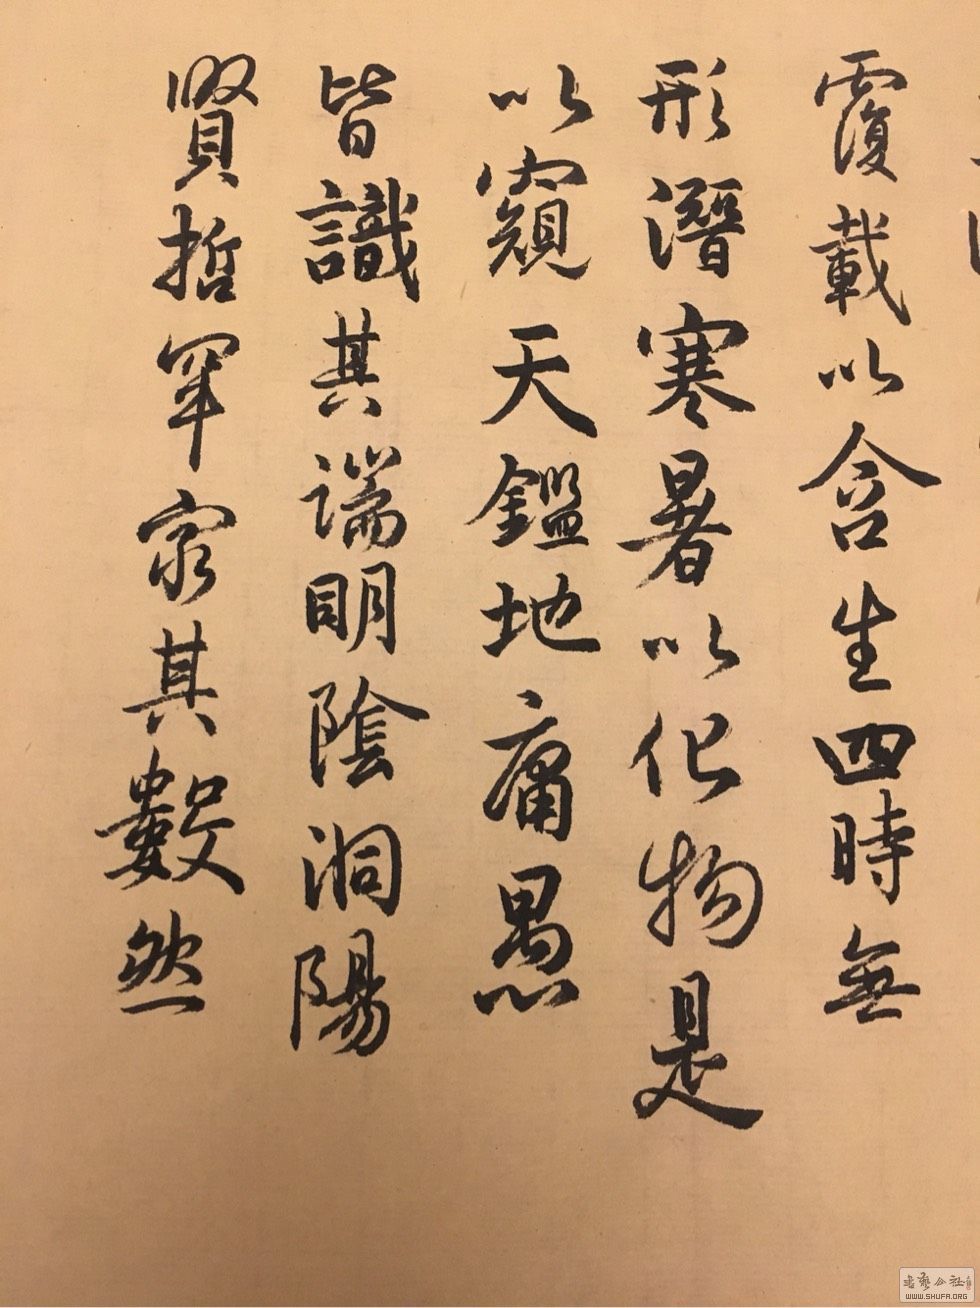 覆載以含生四時無
形潛寒暑以化物是
以窺天鑑地庸愚
皆識其端明陰洞陽
賢哲罕窮其數然
WWW.SHUFA.ORG